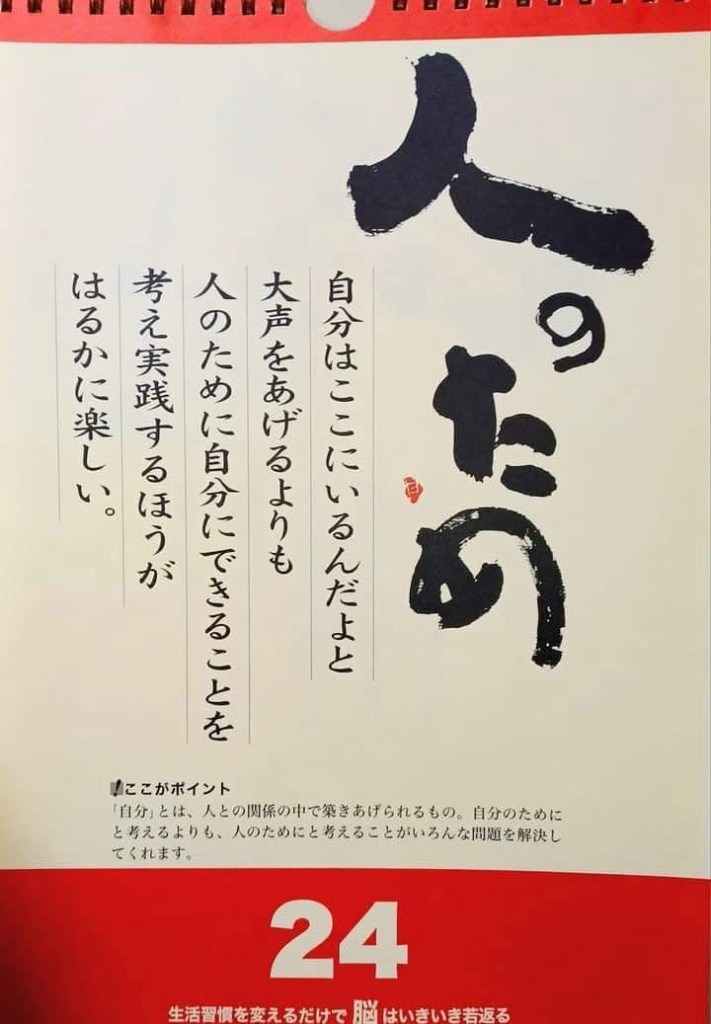 人のため
自分はここにいるんだよと
大声をあげるよりも
人のために自分にできることを
考え実践するほうが
はるかに楽しい。
！ここがポイント
「自分」とは、人との関係の中で築きあげられるもの。自分のために
と考えるよりも、人のためにと考えることがいろんな問題を解決し
てくれます。
24
生活習慣を変えるだけで 脳 はいきいき若返る